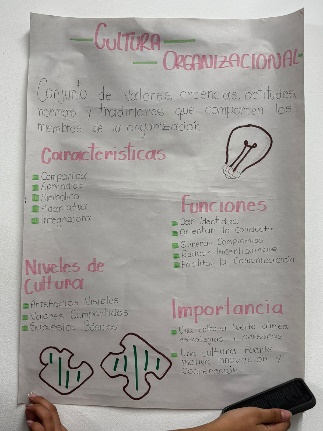 CULTURA
ORGANIZACIONAL
Conjunto de valores, creencias, actitudes,
normas y tradiciones que comparten los
miembros de la organización.
Características
Compartida
Aprendida
Simbólica
Integradora
Funciones
Dar identidad
Orientar la conducta
Generar Compromiso
Reducir Incertidumbre
Facilita la Comunicación
Niveles de
Cultura
Artefactos Visibles
Valores Compartidos
Supuestos Básicos
Importancia
Una cultura fuerte
Una cultura fuerte
motiva innovación y